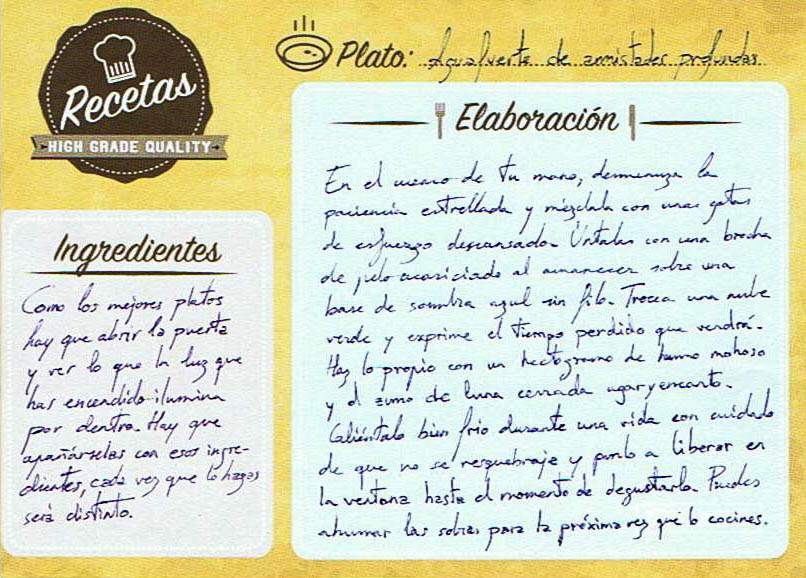 Recetas
HIGH GRADE QUALITY
Plato: Aguafuerte de amistades profundas.
Ingredientes
Como los mejores platos
hay que abrir la puerta
y ver lo que la luz que
has encendido ilumina
por dentro. Hay que
apañárselas con esos ingre-
dientes, cada vez que lo hagas
será distinto.
Elaboración
En el cuenco de tu mano, desmenuza la
paciencia estrellada y mézclala con unas gotas
de esfuerzo descansado. Úntalas con una brocha
de pelo acariciado al amanecer sobre una
base de sombra azul sin filo. Trocea una nube
verde y exprime el tiempo perdido que vendrá.
Haz lo propio con un hectogramo de humo mohoso
y el zumo de luna cerrada
Caliéntalo bien frío durante una vida con cuidado
de que no se resquebraje y ponlo a liberar en
la ventana hasta el momento de degustarlo. Puedes
ahumar las sobras para la próxima vez que lo cocines.